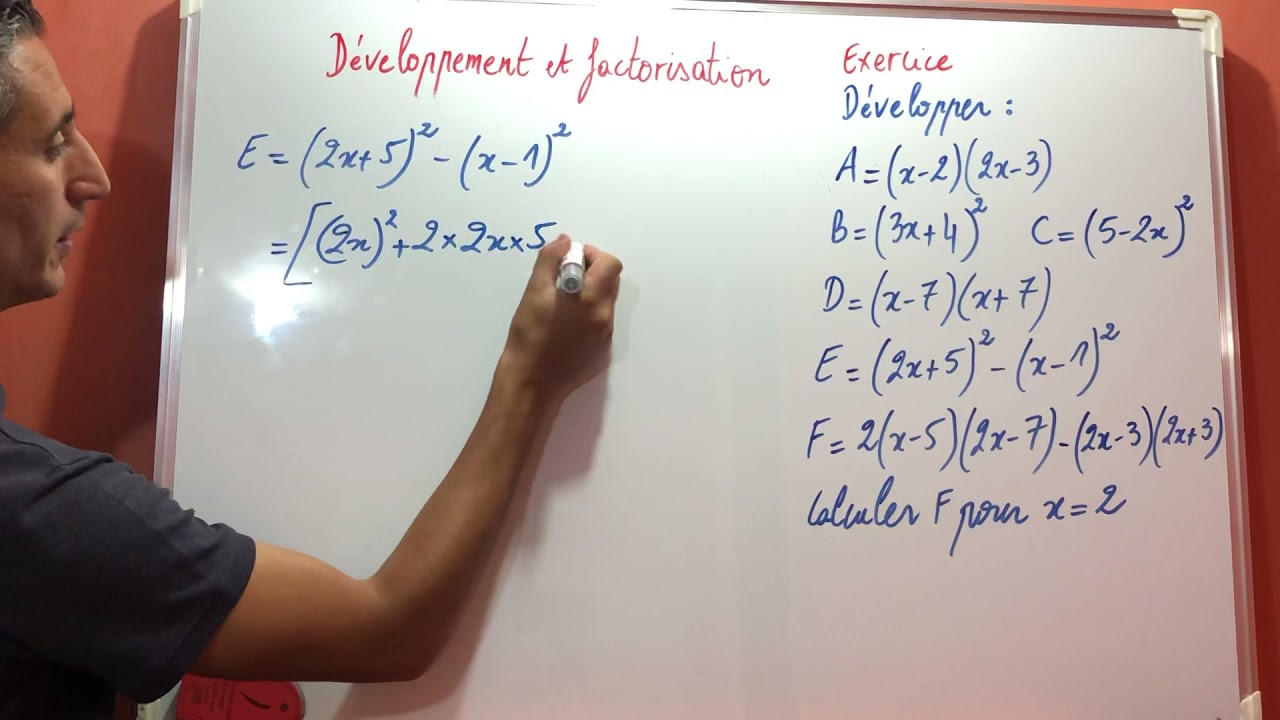 Développement et factorisation
E = (2x+5)² - (x-1)²
= [(2x)² + 2 × 2x × 5
Exercice
Développer :
A = (x-2)(2x-3)
B = (3x+4)² C = (5-2x)²
D = (x-7)(x+7)
E = (2x+5)² - (x-1)²
F = 2(x-5)(2x-7) - (2x-3)(2x+3)
Calculer F pour x = 2